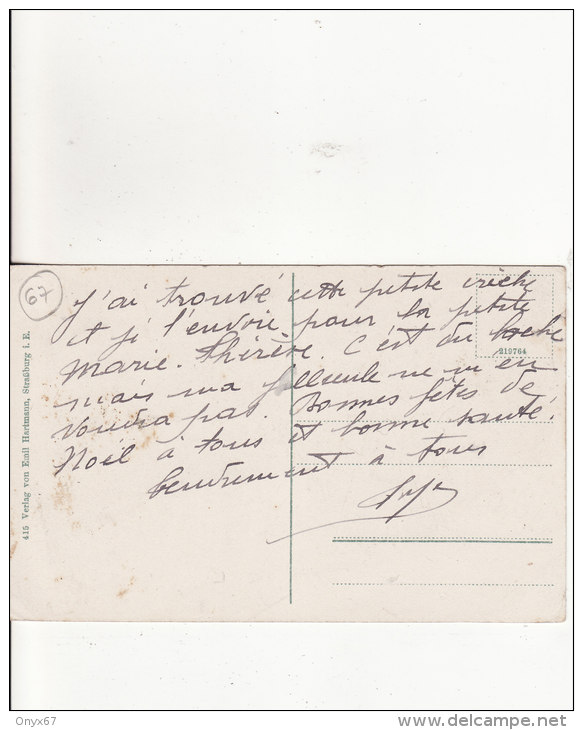 67
J'ai trouvé cette petite crèche
et je l'envoie pour la petite
Marie-Thérèse. C'est du boche
mais ma filleule ne m'en
voudra pas. Bonnes fêtes de
Noël à tous et bonne santé.
Tendrement à tous
210764
415 Verlag von Emil Hartmann, Straßburg i. E.
Onyx67
delcampe.net